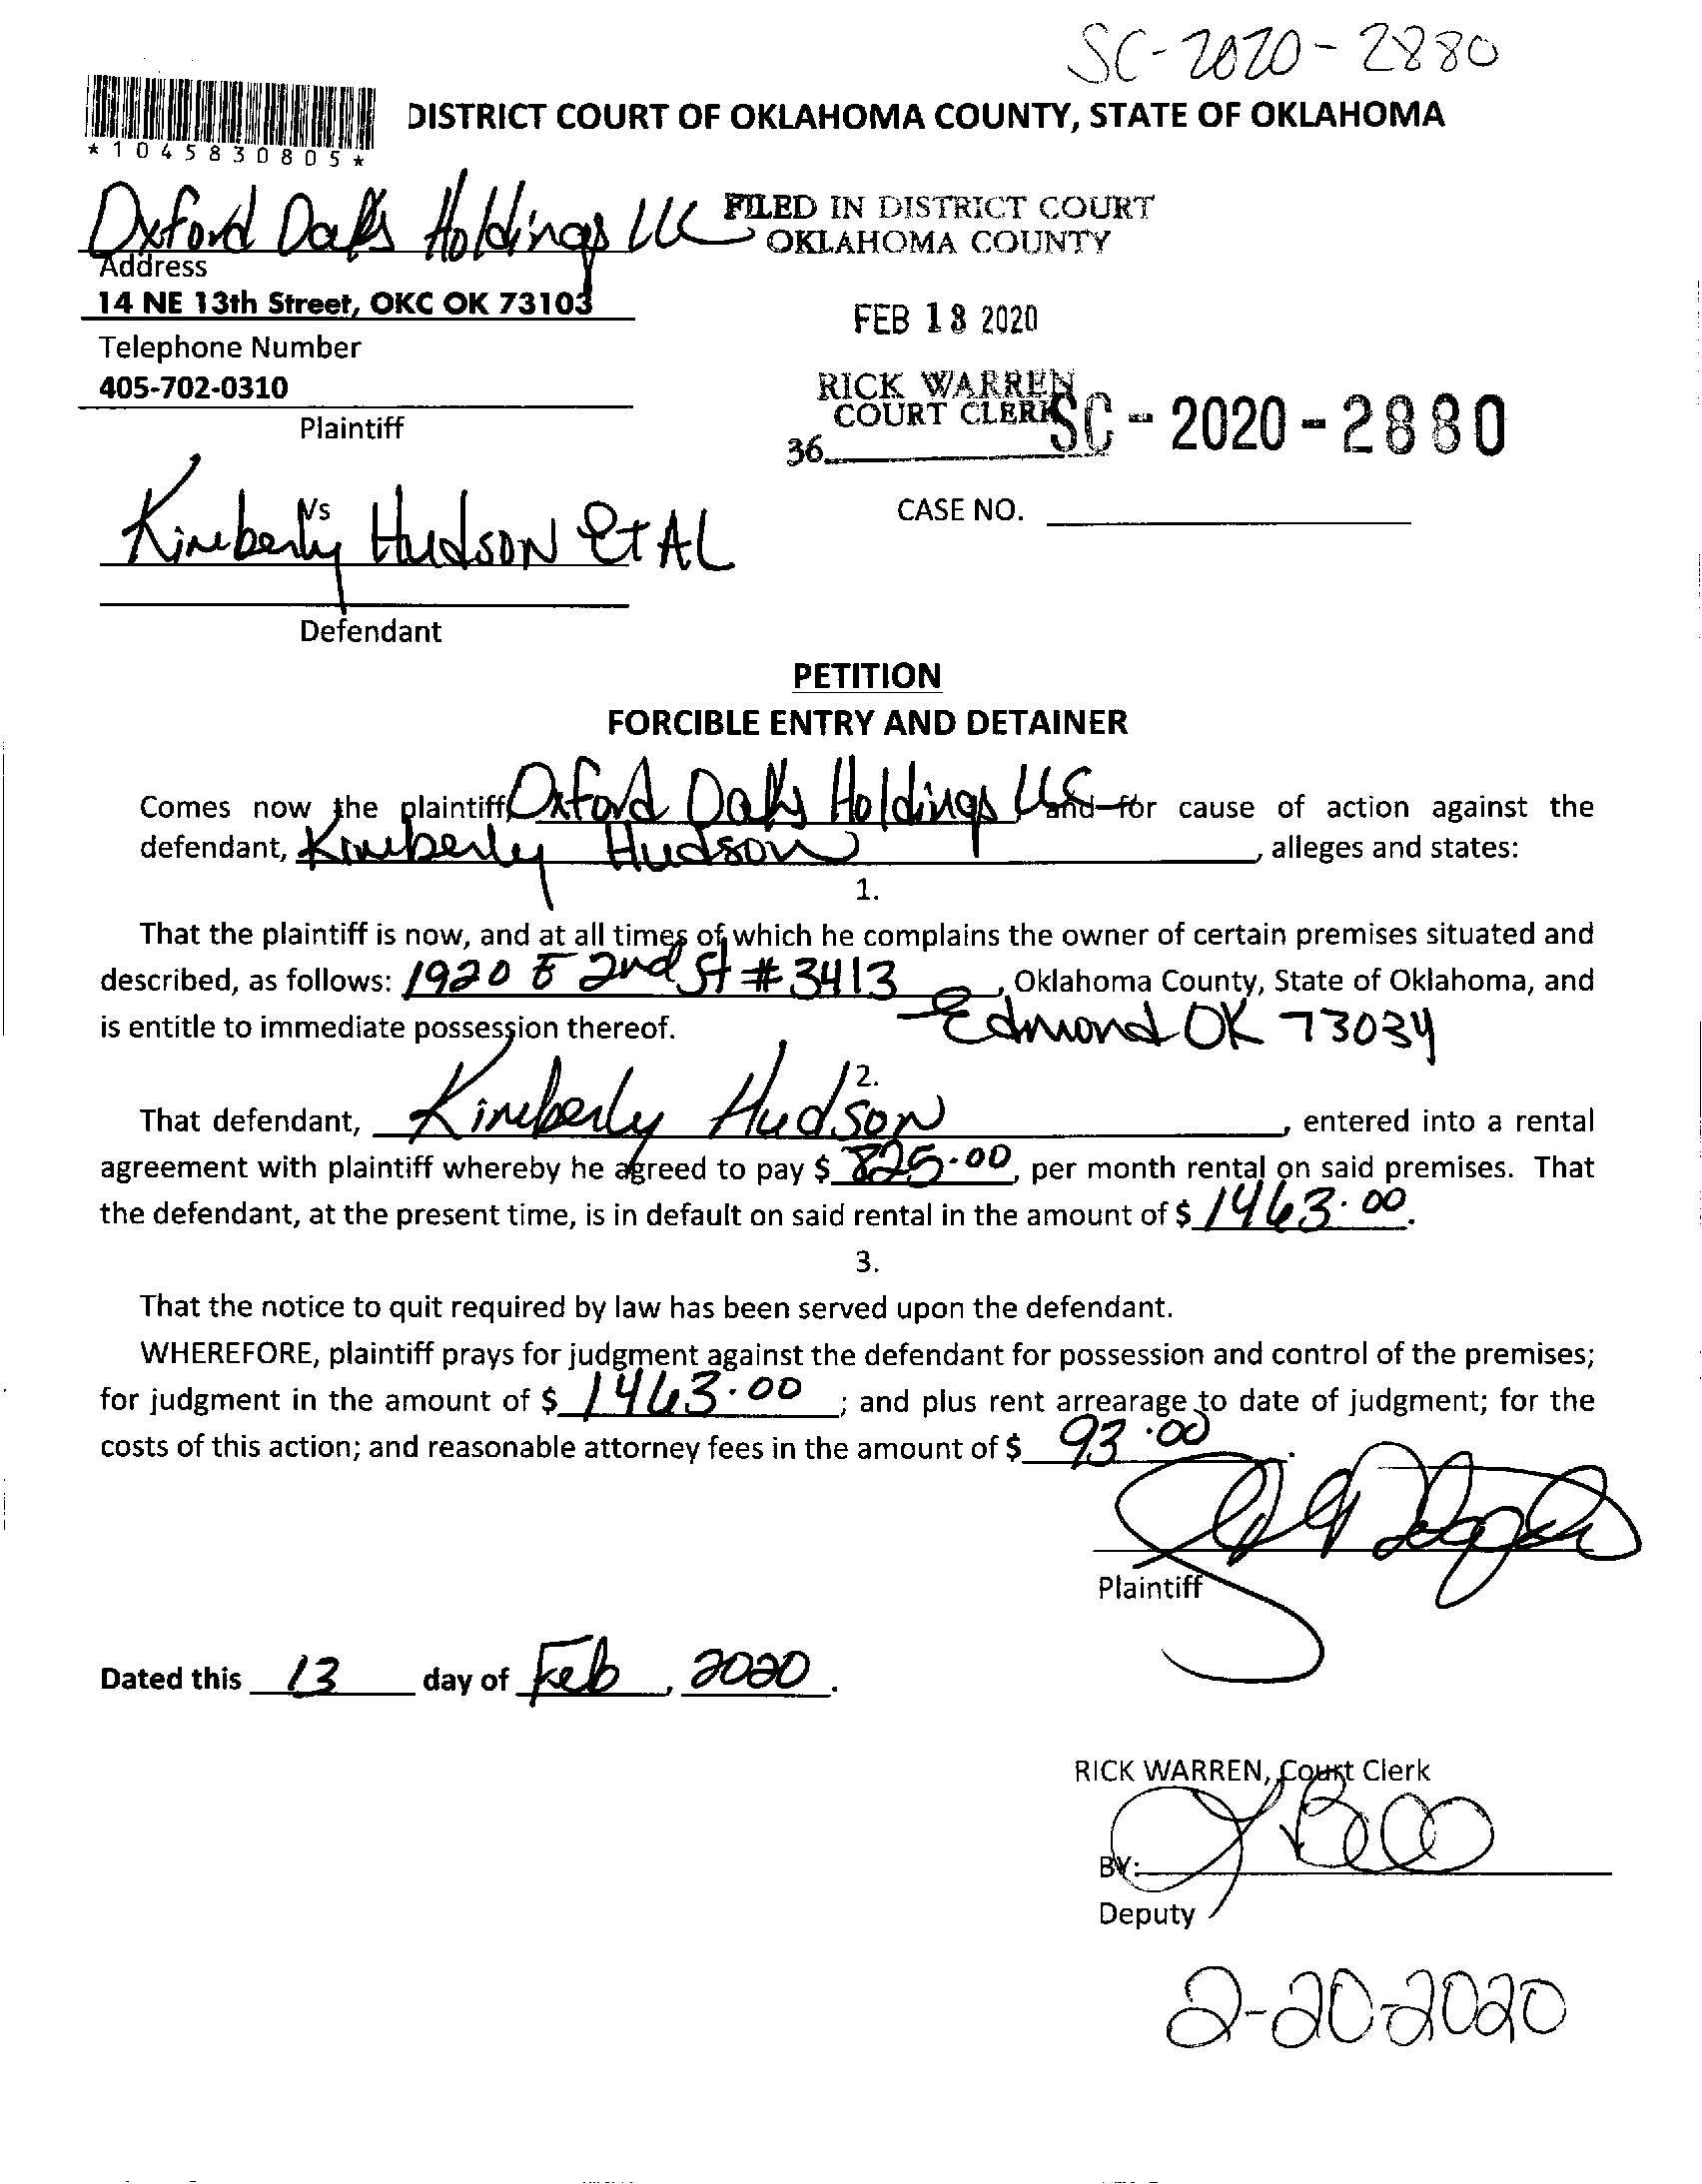 SC-2020-2880
DISTRICT COURT OF OKLAHOMA COUNTY, STATE OF OKLAHOMA
*1045830805*
Oxford Oaks Holdings LLC
FILED IN DISTRICT COURT
OKLAHOMA COUNTY
Address
14 NE 13th Street, OKC OK 73103
FEB 18 2020
Telephone Number
405-702-0310
RICK WARREN
COURT CLERK
SC-2020-2880
Plaintiff
36
Vs
CASE NO.
Kimberly Hudson Et AL
Defendant
PETITION
FORCIBLE ENTRY AND DETAINER
Comes now the plaintiff, Oxford Oaks Holdings LLC and for cause of action against the
defendant, Kimberly Hudson, alleges and states:
1.
That the plaintiff is now, and at all times of which he complains the owner of certain premises situated and
described, as follows: 1920 E 2nd St #3413, Oklahoma County, State of Oklahoma, and
is entitle to immediate possession thereof. Edmond OK 73034
2.
That defendant, Kimberly Hudson, entered into a rental
agreement with plaintiff whereby he agreed to pay $ 825.00, per month rental on said premises. That
the defendant, at the present time, is in default on said rental in the amount of $ 1463.00.
3.
That the notice to quit required by law has been served upon the defendant.
WHEREFORE, plaintiff prays for judgment against the defendant for possession and control of the premises;
for judgment in the amount of $ 1463.00; and plus rent arrearage to date of judgment; for the
costs of this action; and reasonable attorney fees in the amount of $ 93.00.
Plaintiff
Dated this 13 day of Feb, 2020.
RICK WARREN, Court Clerk
BY:
Deputy
2-20-2020